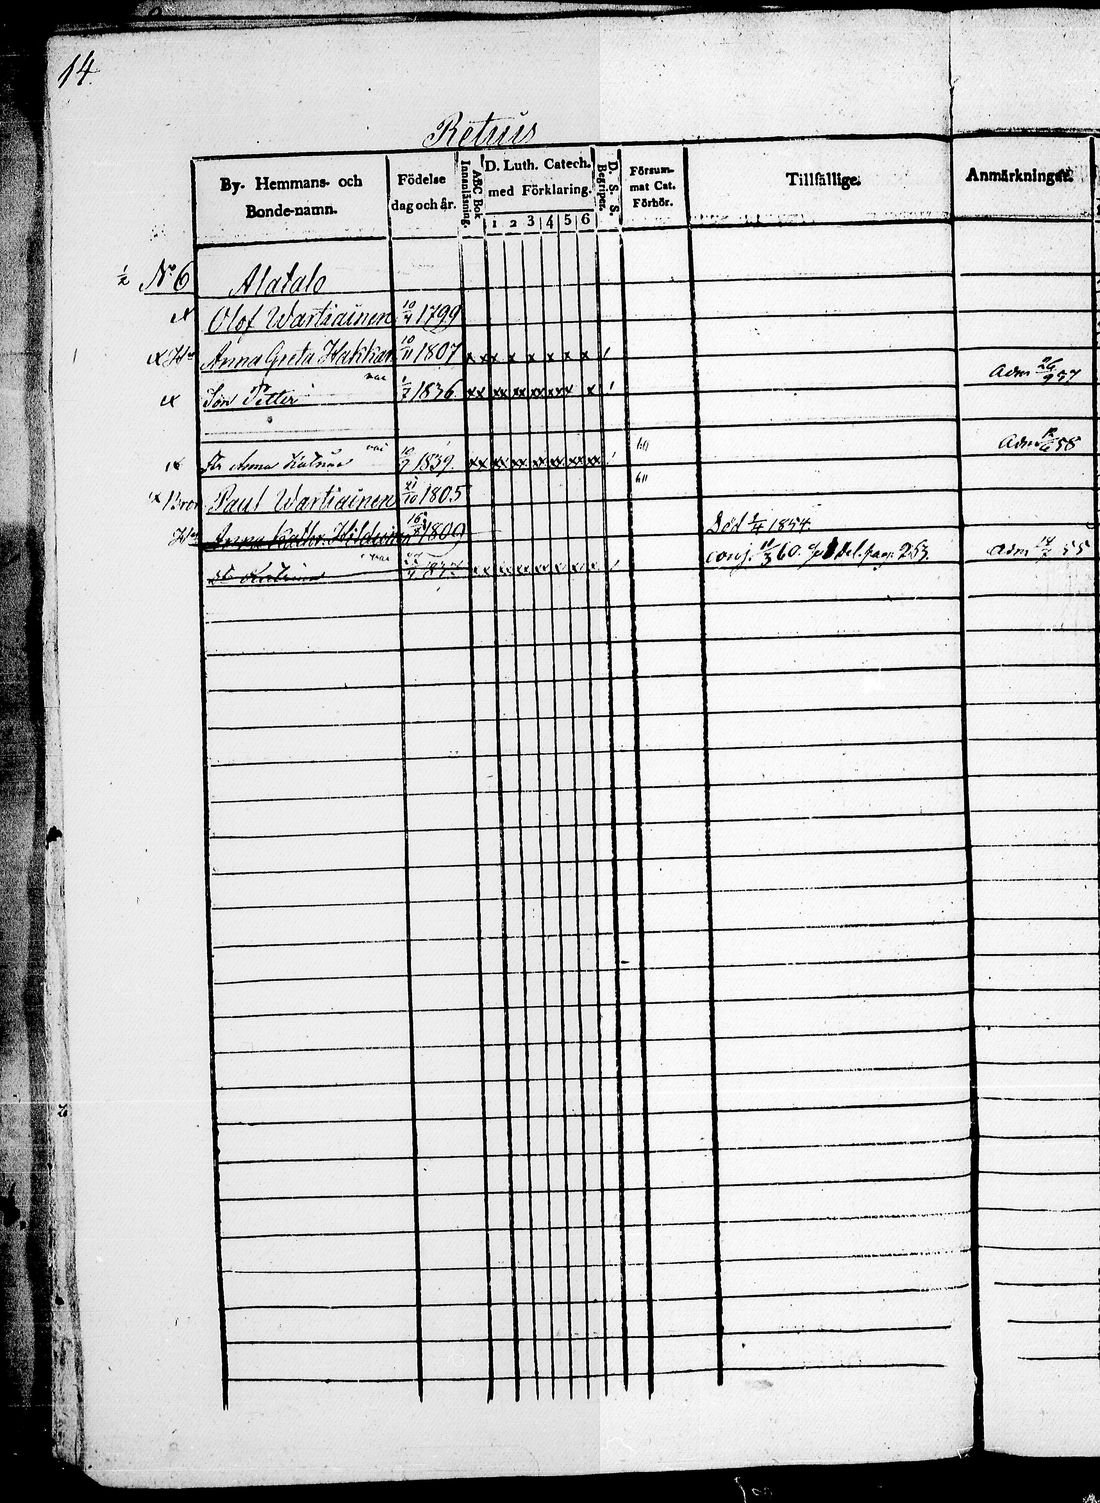 14.
Retuis
By- Hemmans- och Bonde-namn. Födelse dag och år. ABC Bok Innanläsning. D. Luth. Catech. med Förklaring. 1 2 3 4 5 6 Begriper. D. S. S. Försummat Cat. Förhör. Tillfällige. Anmärkningar.
1/2 No 6 Alatalo
Olof Wartiainen 10/4 1799
Anna Greta Hakkar 10/11 1807 x x x x x x x x
Son Petter 1/7 1836. xx xx xx xx xx x Adm 26/9 57
Dr Anna 1839. xx xx xx xx xx xx xx Adm 58
Bror Paul Wartiainen 21/10 1805
Anna Cathr. 1809 Död 2/4 1854.
xx xx xx xx xx xx conj. 11/3 60. pag. 253. Adm 14/7 55